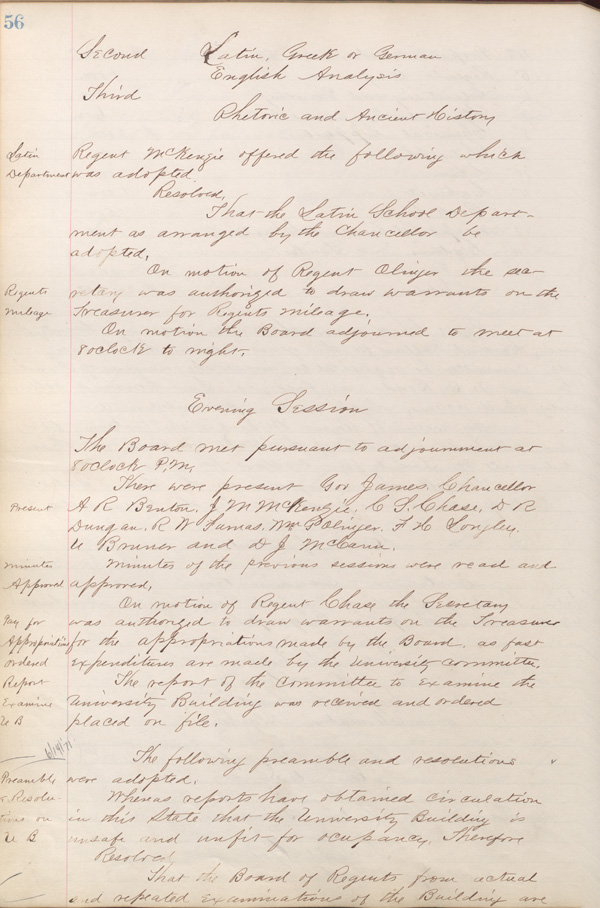 56
Second Latin, Greek or German
English Analysis
Third
Rhetoric and Ancient History
Latin Department
Regent McKenzie offered the following which
was adopted.
Resolved,
That the Latin School Depart-
ment as arranged by the Chancellor be
adopted.
On motion of Regent Olinger the sec
Regents mileage
retary was authorized to draw warrants on the
Treasurer for Regents mileage.
On motion the Board adjourned to meet at
8 oclock to night.
Evening Session
The Board met pursuant to adjournment at
8 oclock P.M.
There were present Gov James. Chancellor
Present
A R Benton. J M McKenzie. C S. Chase. D R
Dungan. R W Furnas. Wm P Olinger. F H Longley.
U Bruner and D J McCann.
Minutes Approved
Minutes of the previous sessions were read and
approved.
On motion of Regent Chase the Secretary
Pay for Appropriations ordered
was authorized to draw warrants on the Treasurer
for the appropriations made by the Board. as fast
expenditures are made by the University committee.
Report Examine U B
The report of the Committee to Examine the
University Building was received and ordered
placed on file.
6/19/71
The following preamble and resolutions
Preamble & Resolu- tions on U B
were adopted.
Whereas reports have obtained circulation
in this State that the University Building is
unsafe and unfit for ocupancy. Therefore
Resolved,
That the Board of Regents from actual
and repeated Examinations of the Building are